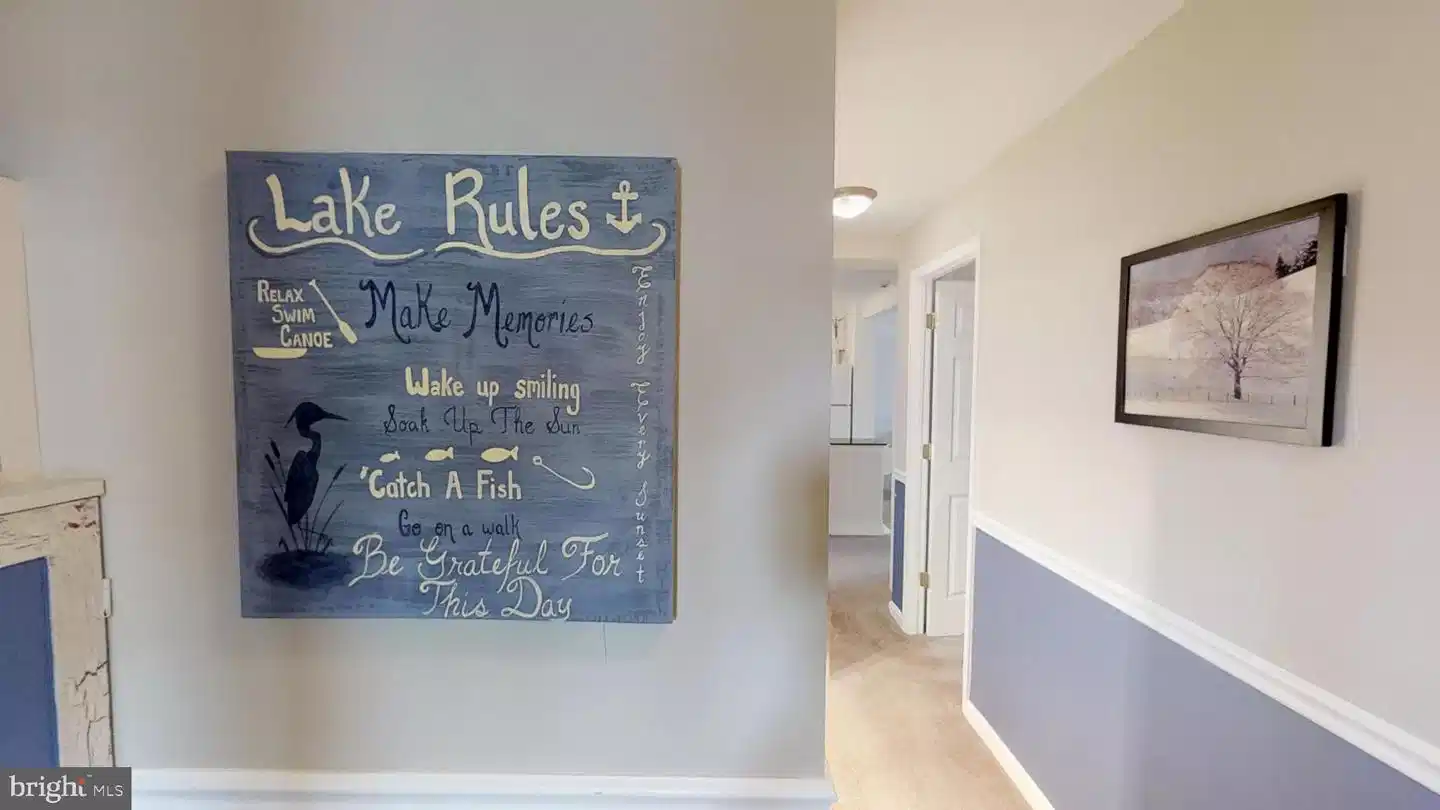 Lake Rules
RELAX
SWIM
CANOE
Make Memories
Wake up smiling
Soak Up The Sun
'Catch A Fish
Go on a walk
Be Grateful For
This Day
Enjoy Every Sunset
bright MLS